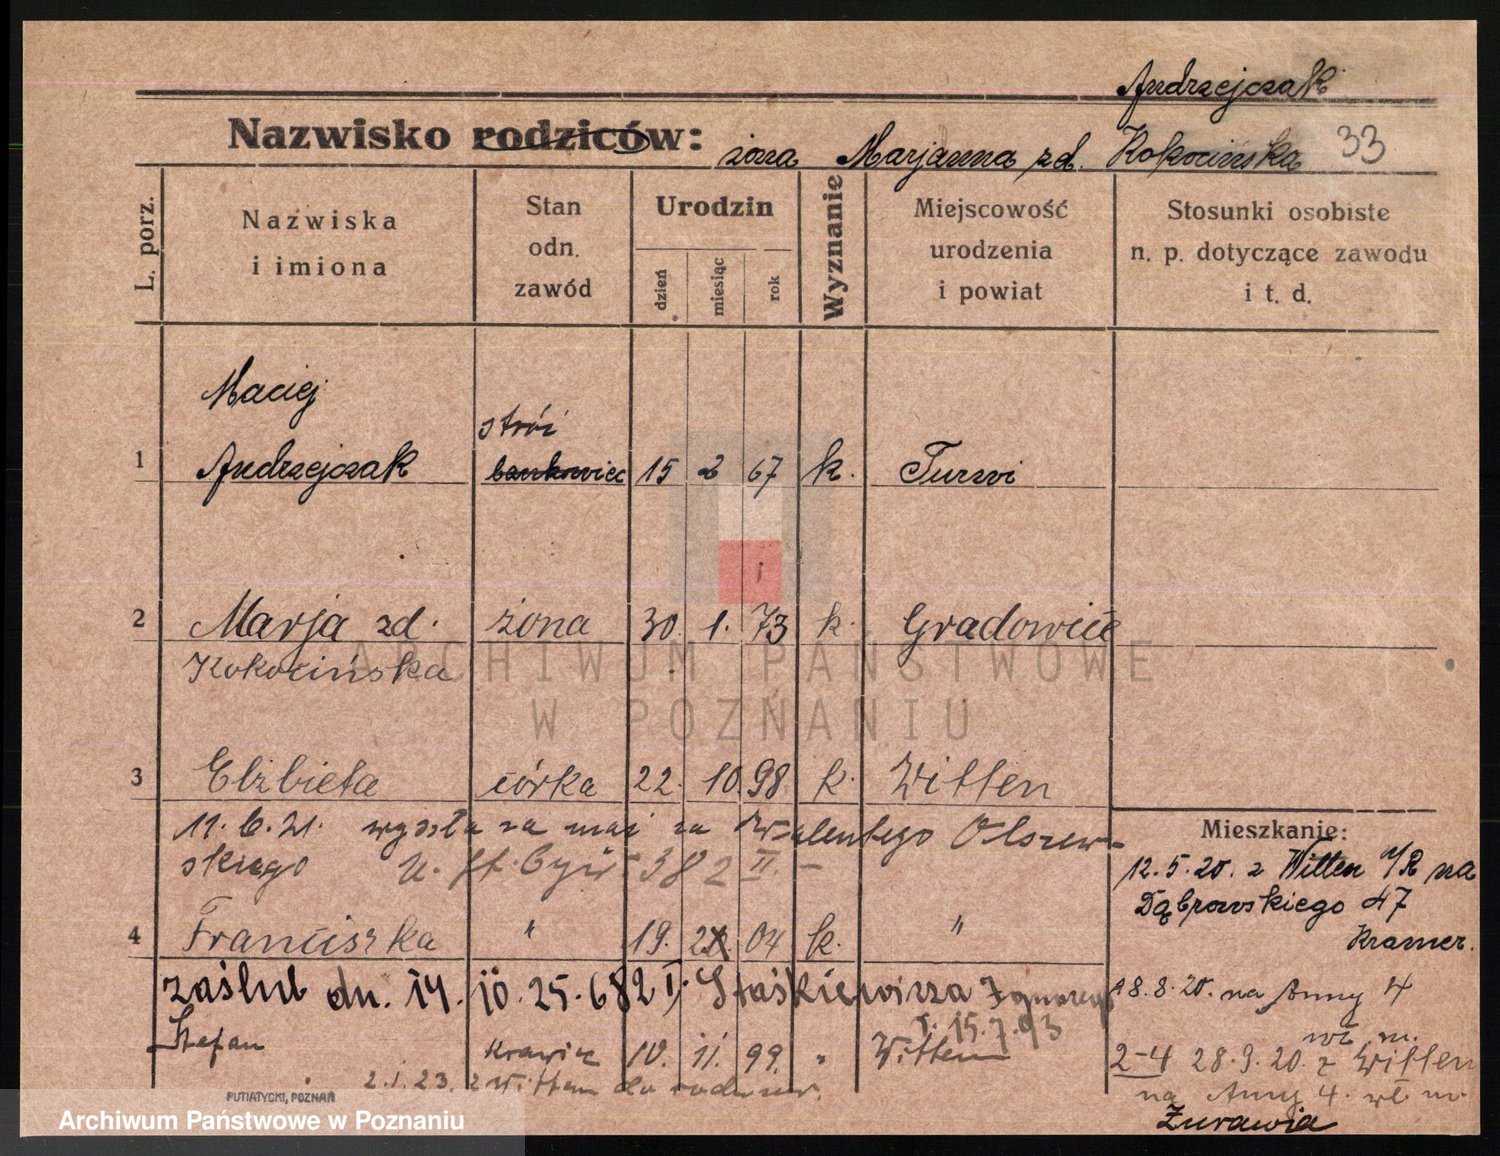 Andrzejczak
Nazwisko rodziców: żona Marjanna zd. Kokocińska 33
L. porz.
Nazwiska i imiona
Stan odn. zawód
Urodzin
dzień
miesiąc
rok
Wyznanie
Miejscowość urodzenia i powiat
Stosunki osobiste n. p. dotyczące zawodu i t. d.
Maciej
stróż
1 Andrzejczak bankowiec 15 2 67 k. Turwi
2 Marja zd. żona 30. 1. 73 k. Gradowice
Kokocińska
3 Elżbieta córka 22. 10. 98. k. Witten
11. 6. 21. wyszła za mąż za Walentego Olszew-
skiego 382 II –
4 Franciszka " 19. 2. 04 k. "
zaślub dn. 14. 10. 25. 682 I. Staśkiewicza Ignacego
15.7.93
Stefan krawiec 10. 11. 99. " Witten
2.1.23. z Witten do
Mieszkanie:
12.5.20. z Witten /R na
Dąbrowskiego 47
Kramer.
18.8.20. na Anny 4
wł. m.
2-4 28.9.20. z Witten
na Anny 4. wł. m.
Żurawia
PUTIATYCKI, POZNAŃ
ARCHIWUM PAŃSTWOWE
W POZNANIU
Archiwum Państwowe w Poznaniu